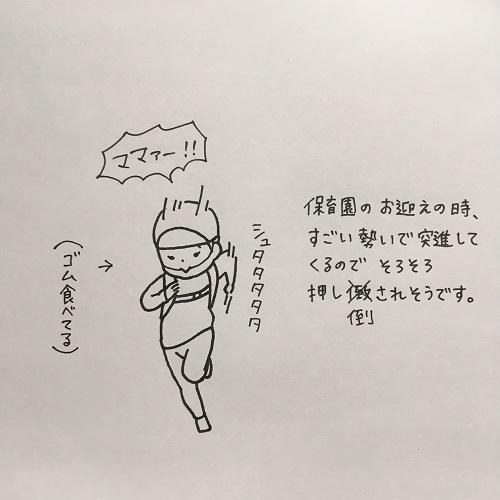 ママァー!!
シュタタタタタ
(ゴム食べてる)
→
保育園の お迎えの時、
すごい 勢いで 突進して
くるので そろそろ
押し倒されそうです。
倒